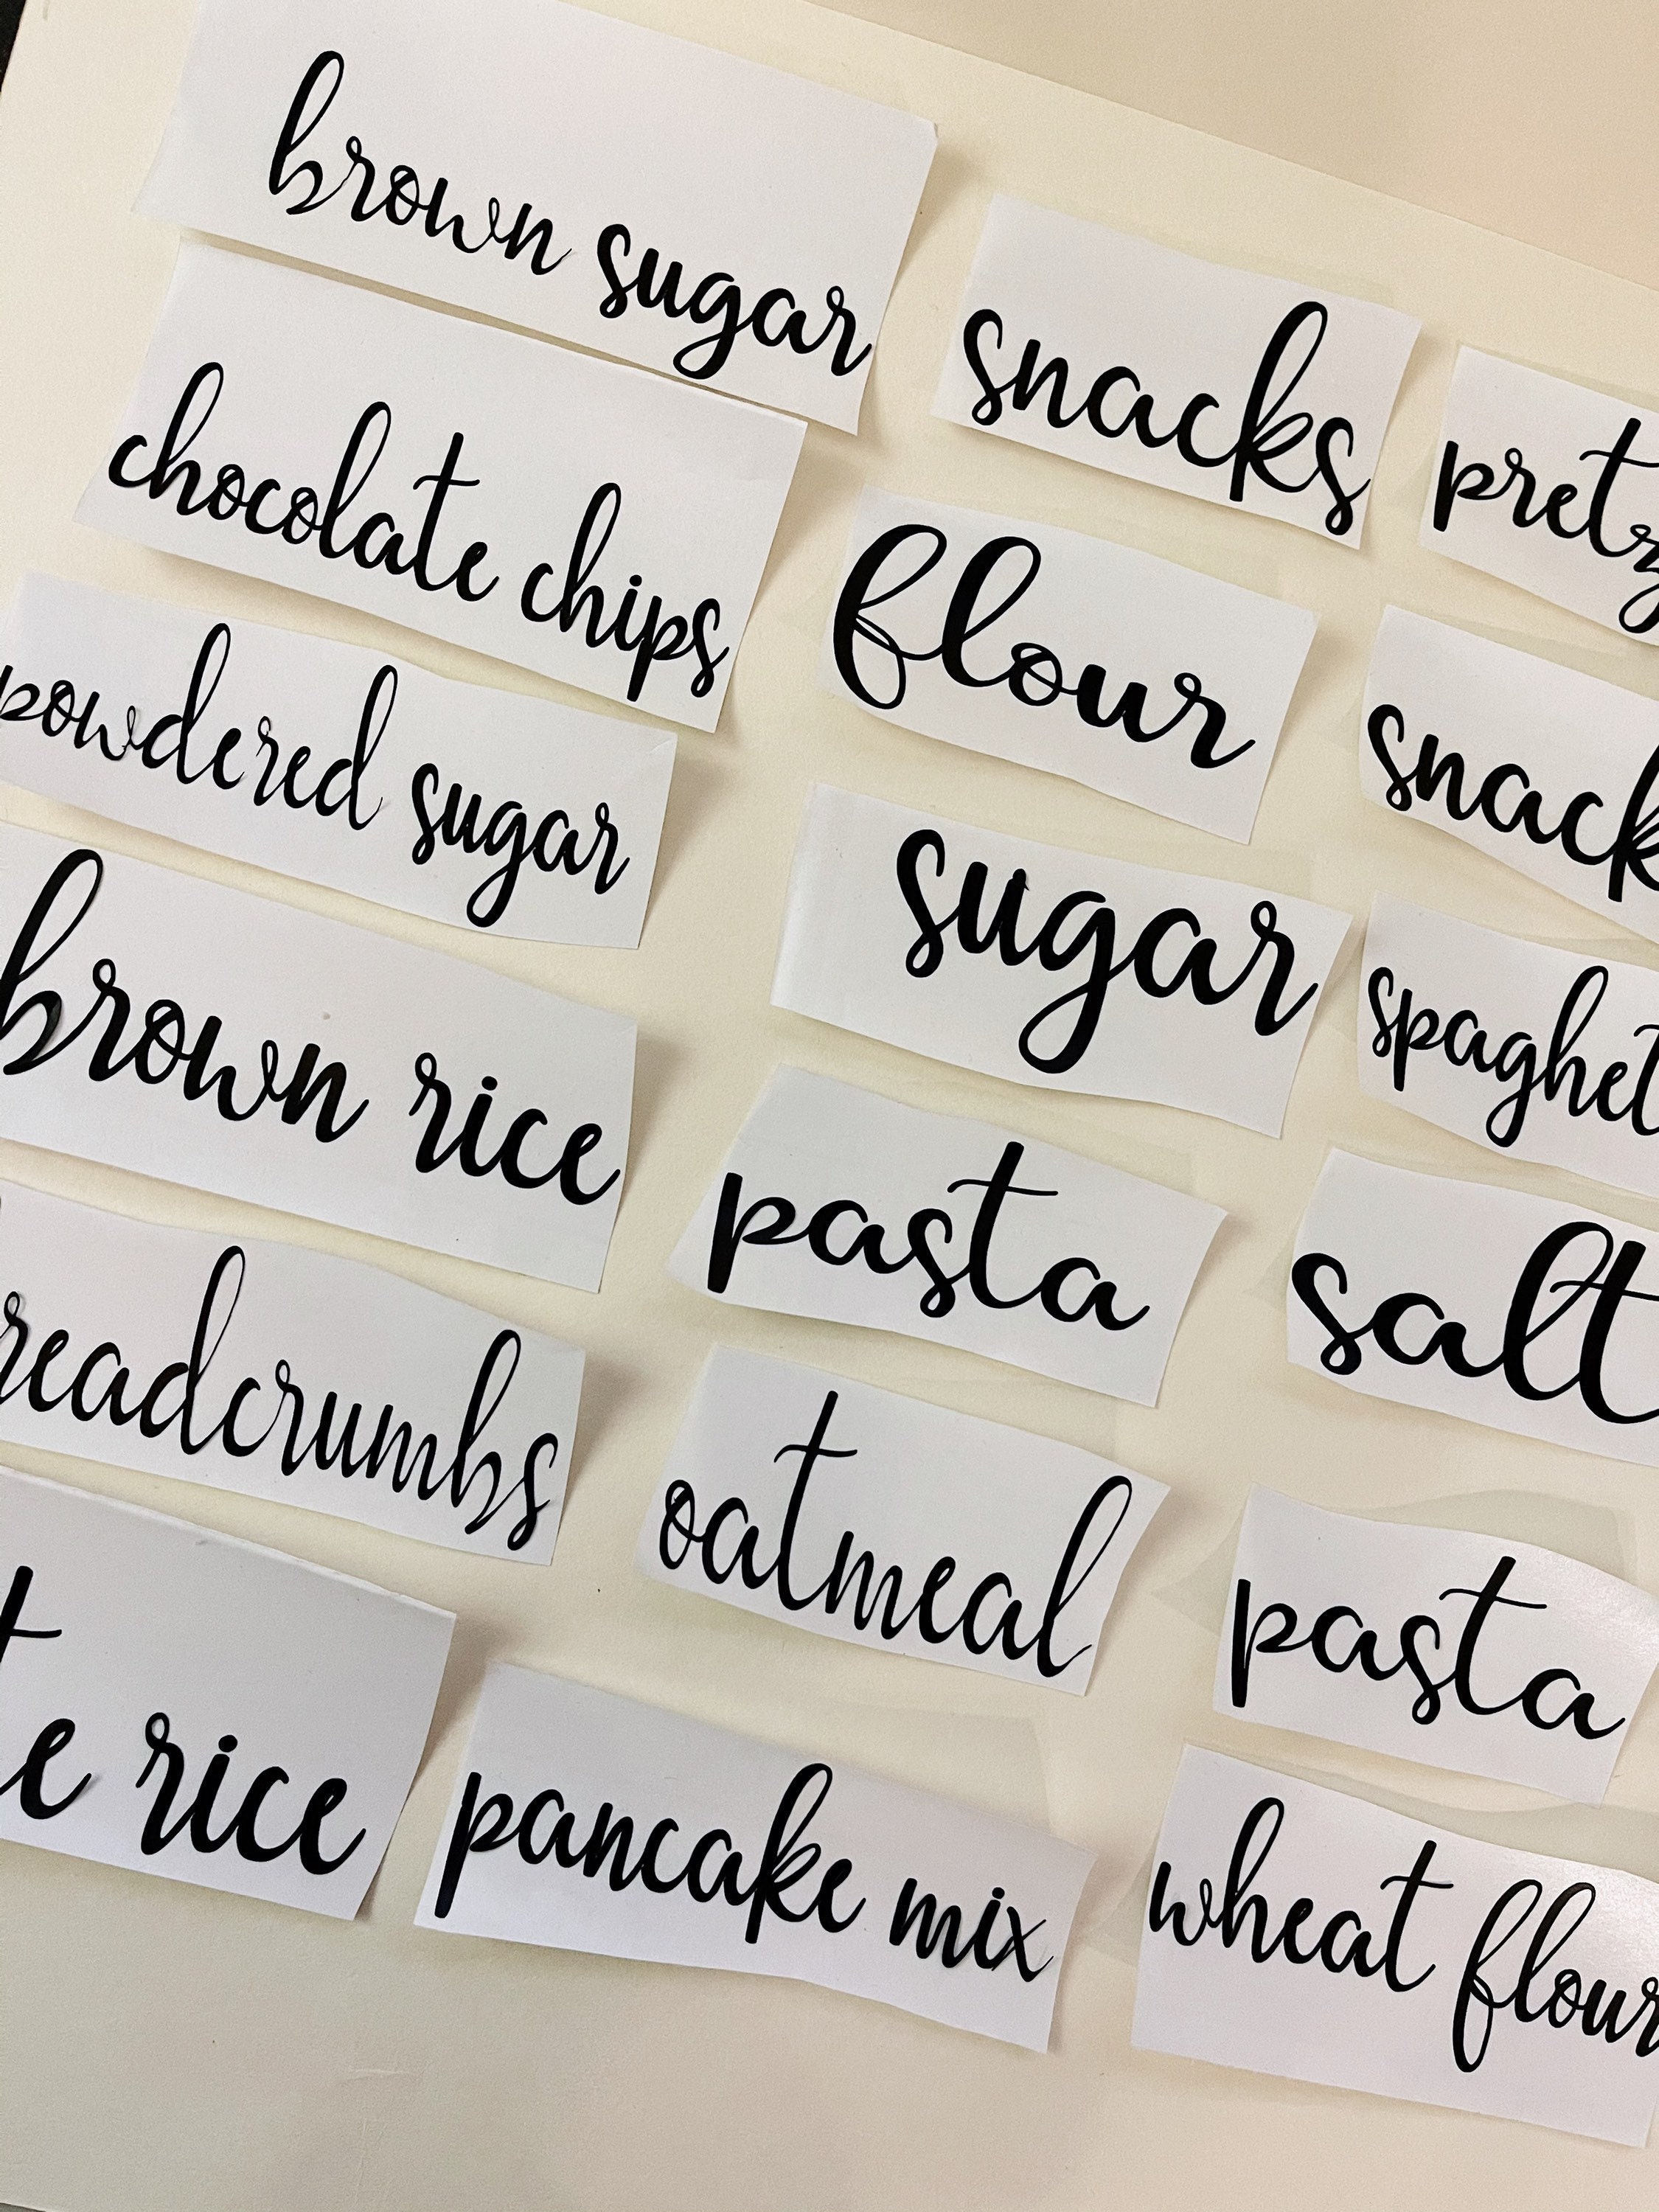 brown sugar
chocolate chips
powdered sugar
brown rice
readcrumbs
e rice
snacks
flour
sugar
pasta
oatmeal
pancake mix
pretz
snack
spaghet
salt
pasta
wheat flour